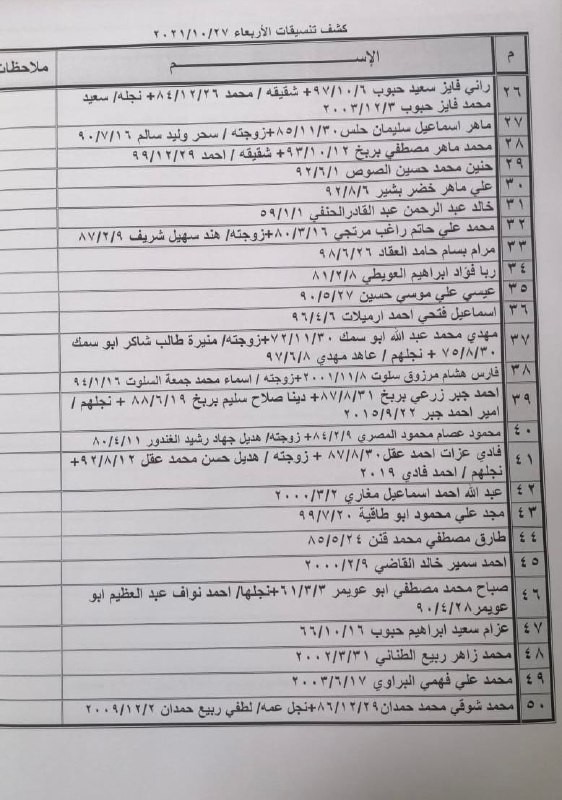 كشف تنسيقات الأربعاء ٢٠٢١/١٠/٢٧
م الإســــــــــــم ملاحظات
٢٦ راني فايز سعيد حبوب ٩٧/١٠/٦+ شقيقه / محمد ٨٤/١٢/٢٦+ نجله/ سعيد
محمد فايز حبوب ٢٠٠٣/١٢/٣
٢٧ ماهر اسماعيل سليمان حلس٨٥/١١/٣٠+زوجته/ سحر وليد سالم ٩٠/٧/١٦
٢٨ محمد ماهر مصطفي بربخ ٩٣/١٠/١٢+ شقيقه / احمد ٩٩/١٢/٢٩
٢٩ حنين محمد حسين الصوص ٩٢/٦/١
٣٠ علي ماهر خضر بشير ٩٢/٨/٦
٣١ خالد عبد الرحمن عبد القادرالحنفي ٥٩/١/١
٣٢ محمد علي حاتم راغب مرتجي ٨٠/٣/١٦+زوجته/ هند سهيل شريف ٨٧/٢/٩
٣٣ مرام بسام حامد العقاد ٩٨/٦/٢٦
٣٤ ربا فؤاد ابراهيم العويطي ٨١/٢/٨
٣٥ عيسي علي موسي حسين ٩٠/٥/٢٧
٣٦ اسماعيل فتحي احمد ارميلات ٩٦/٤/٦
٣٧ مهدي محمد عبد الله ابو سمك ٧٢/١١/٣٠+زوجته/ منيرة طالب شاكر ابو سمك
٧٥/٨/٣٠ + نجلهم / عاهد مهدي ٩٧/٦/٨
٣٨ فارس هشام مرزوق سلوت ٢٠٠١/١١/٨+زوجته / اسماء محمد جمعة السلوت ٩٤/١/١٦
٣٩ احمد جبر زرعي بربخ ٨٧/٨/٣١+ دينا صلاح سليم بربخ ٨٨/٦/١٩ + نجلهم /
امير احمد جبر ٢٠١٥/٩/٢٢
٤٠ محمود عصام محمود المصري ٨٤/٢/٩+ زوجته/ هديل جهاد رشيد الغندور ٨٠/٤/١١
٤١ فادي عزات احمد عقل ٨٧/٨/٣٠ + زوجته / هديل حسن محمد عقل ٩٢/٨/١٢+
نجلهم / احمد فادي ٢٠١٩
٤٢ عبد الله احمد اسماعيل مغاري ٢٠٠٠/٣/٢
٤٣ مجد علي محمود ابو طاقية ٩٩/٧/٢٠
٤٤ طارق مصطفي محمد قنن ٨٥/٥/٢٤
٤٥ احمد سمير خالد القاضي ٢٠٠٠/٢/٩
٤٦ صباح محمد مصطفي ابو عويمر ٦١/٣/٣+نجلها/ احمد نواف عبد العظيم ابو
عويمر٩٠/٤/٢٨
٤٧ عزام سعيد ابراهيم حبوب ٦٦/١٠/١٦
٤٨ محمد زاهر ربيع الطناني ٢٠٠٢/٣/٣١
٤٩ محمد علي فهمي البراوي ٢٠٠٣/٦/١٧
٥٠ محمد شوقي محمد حمدان٨٦/١٢/٢٩+نجل عمه/ لطفي ربيع حمدان ٢٠٠٩/١٢/٢